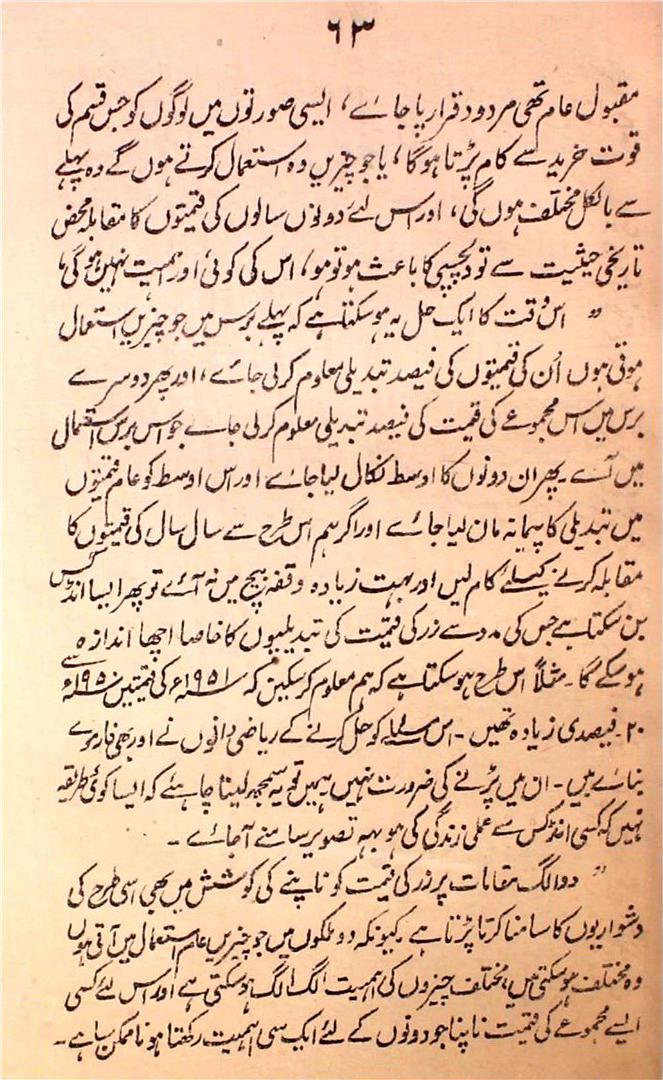 ۶۳
مقبول عام تھی مردود قرار پا جائے، ایسی صورتوں میں لوگوں کو جس قسم کی
قوت خرید سے کام پڑتا ہوگا، یا جو چیزیں وہ استعمال کرتے ہوں گے وہ پہلے
سے بالکل مختلف ہوں گی، اور اس لئے دونوں سالوں کی قیمتوں کا مقابلہ محض
تاریخی حیثیت سے تو دلچسپی کا باعث ہو تو ہو، اس کی کوئی اور اہمیت نہیں ہوگی،
” اس وقت کا ایک حل یہ ہو سکتا ہے کہ پہلے برس میں جو چیزیں استعمال
ہوتی ہوں اُن کی قیمتوں کی فیصد تبدیلی معلوم کر لی جائے، اور پھر دوسرے
برس میں اس مجموعے کی قیمت کی فیصد تبدیلی معلوم کر لی جائے جو اس برس استعمال
میں آئے۔ پھر ان دونوں کا اوسط نکال لیا جائے اور اس اوسط کو عام قیمتوں
میں تبدیلی کا پیمانہ مان لیا جائے اور اگر ہم اس طرح سے سال سال کی قیمتوں کا
مقابلہ کرنے کیلئے کام لیں اور بہت زیادہ وقفہ بیچ میں نہ آئے تو پھر ایسا انڈکس
بن سکتا ہے جس کی مدد سے زر کی قیمت کی تبدیلیوں کا خاصا اچھا اندازہ
ہو سکے گا۔ مثلاً اس طرح ہو سکتا ہے کہ ہم معلوم کر سکیں کہ ۱۹۵۱ء کی قیمتیں ۱۹۵۰ء سے
۲۰۔ فیصدی زیادہ تھیں۔ اس مسئلہ کو حل کرنے کے ریاضی دانوں نے اور بھی فارمولے
بنائے ہیں۔ ان میں پڑنے کی ضرورت نہیں ہمیں تو یہ سمجھ لینا چاہئے کہ ایسا کوئی طریقہ
نہیں کہ کسی انڈکس سے عملی زندگی کی ہو بہو تصویر سامنے آجائے۔
” دو الگ مقامات پر زر کی قیمت کو ناپنے کی کوشش میں بھی اسی طرح کی
دشواریوں کا سامنا کرنا پڑتا ہے۔ کیونکہ دو ملکوں میں جو چیزیں عام استعمال میں آتی ہوں
وہ مختلف ہو سکتی ہیں، مختلف چیزوں کی اہمیت الگ الگ ہو سکتی ہے اور اس لئے کسی
ایسے مجموعے کی قیمت ناپنا جو دونوں کے لئے ایک سی اہمیت رکھتا ہو ناممکن سا ہے۔